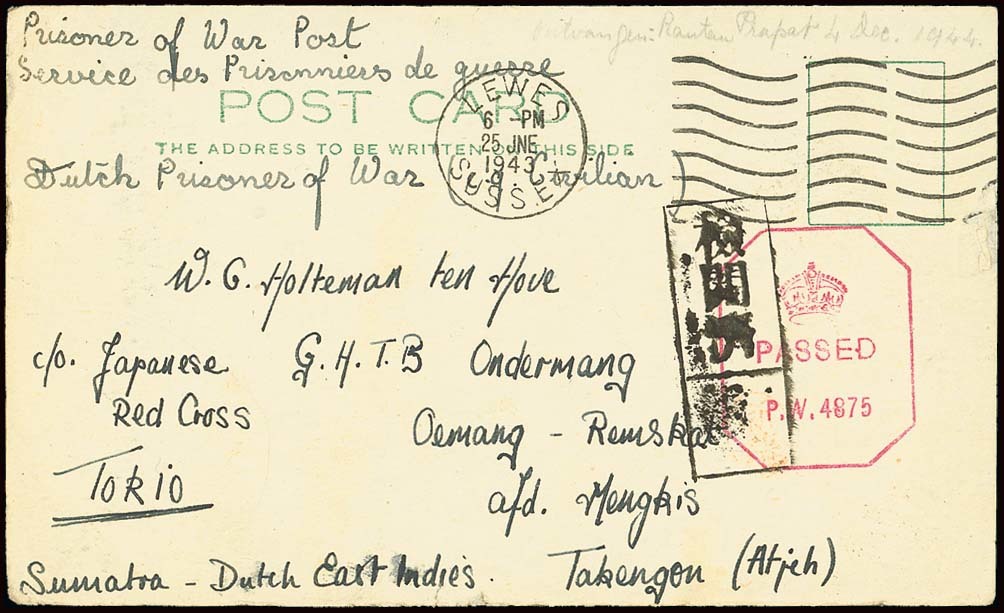 Ontvangen: Rantau Prapat 4 Dec. 1944.
Prisoner of War Post
Service des Prisonniers de guerre
POST CARD
THE ADDRESS TO BE WRITTEN ON THIS SIDE
LEWES
6 - PM
25 JNE
1943
SUSSEX
Dutch Prisoner of War Civilian
W. G. Holteman ten Hove
c/o. Japanese G.H.T.B Ondermang
Red Cross Oemang - Remskat
TOKIO afd. Mengkis
Sumatra - Dutch East Indies. Takengon (Atjeh)
檢閲
PASSED
P.W. 4875